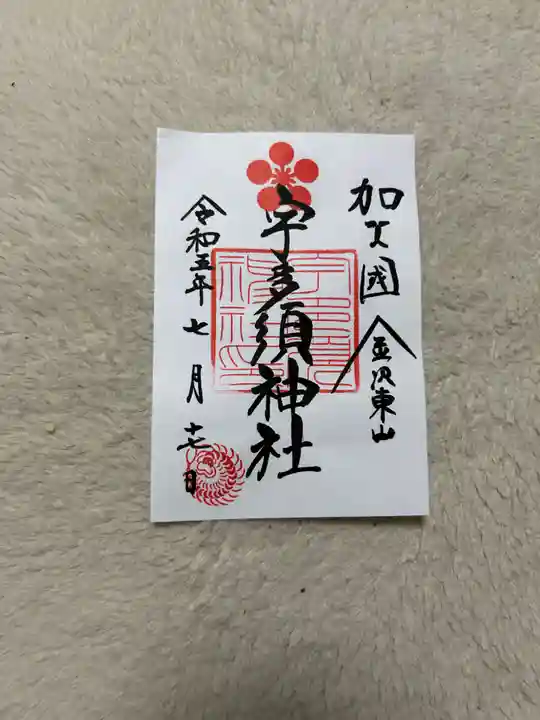 加乂國
金沢東山
宇多須神社
令和五年七月十七日